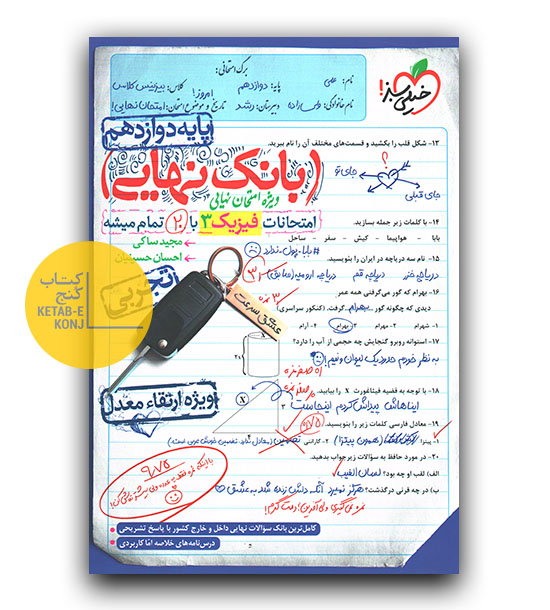 خیلی سبز!
برگ امتحانی:
نام: علی
پایه: دوازدهم
کلاس: بیزینس کلاس
نام خانوادگی:
دبیرستان: رشد
تاریخ و موضوع امتحان: امروز! امتحان نهایی!
پایه دوازدهم
۱۳- شکل قلب را بکشید و قسمت‌های مختلف آن را نام ببرید.
؟
جای تو
جای قبلی
(بانک نهایی)
ویژه امتحان نهایی
امتحانات فیزیک ۳ با ۲۰ تمام میشه
۱۴- با کلمات زیر جمله بسازید.
بابا - هواپیما - کیش - سفر - ساحل
#بابا-پول-ندارد
مجید ساکی
احسان حسینیان
۱۵- نام سه دریاچه در ایران را بنویسید.
دریای خزر دریاچه قم دریاچه ارومیه (سابق)
تجربی
کتاب
گنج
KETAB-E
KONJ
۱۶- بهرام که گور می‌گرفتی همه عمر
دیدی که چگونه گور ... بهرام ... گرفت. (کنکور سراسری)
۱- شهرام ۲- بهرام ۳- مهرام ۴- آرام
عشق سرعت
۱۷- استوانه روبرو گنجایش چه حجمی از آب را دارد؟
به نظر خودم حدود یک لیوان و نیم!
۲۸
۱۸- با توجه به قضیه فیثاغورث X را بیابید.
X
۳
ایناهاش پیداش کردم اینجاست
ویژه ارتقاء معدل
۱۹- معادل فارسی کلمات زیر را بنویسید.
۱- پیتزا
(همون پیتزا)
۲- گارانتی
۲۰- در مورد حافظ به سؤالات زیر جواب بدهید.
الف) لقب او چه بود؟ لسان الغیب
ب) در چه قرنی درگذشت؟ هرگز نمیرد آنکه دلش زنده شد به عشق
نمره نمی‌گیری ولی آفرین! دمت گرم!
۹/۷۵
کامل‌ترین بانک سوالات نهایی داخل و خارج کشور با پاسخ تشریحی
درس‌نامه‌های خلاصه اما کاربردی